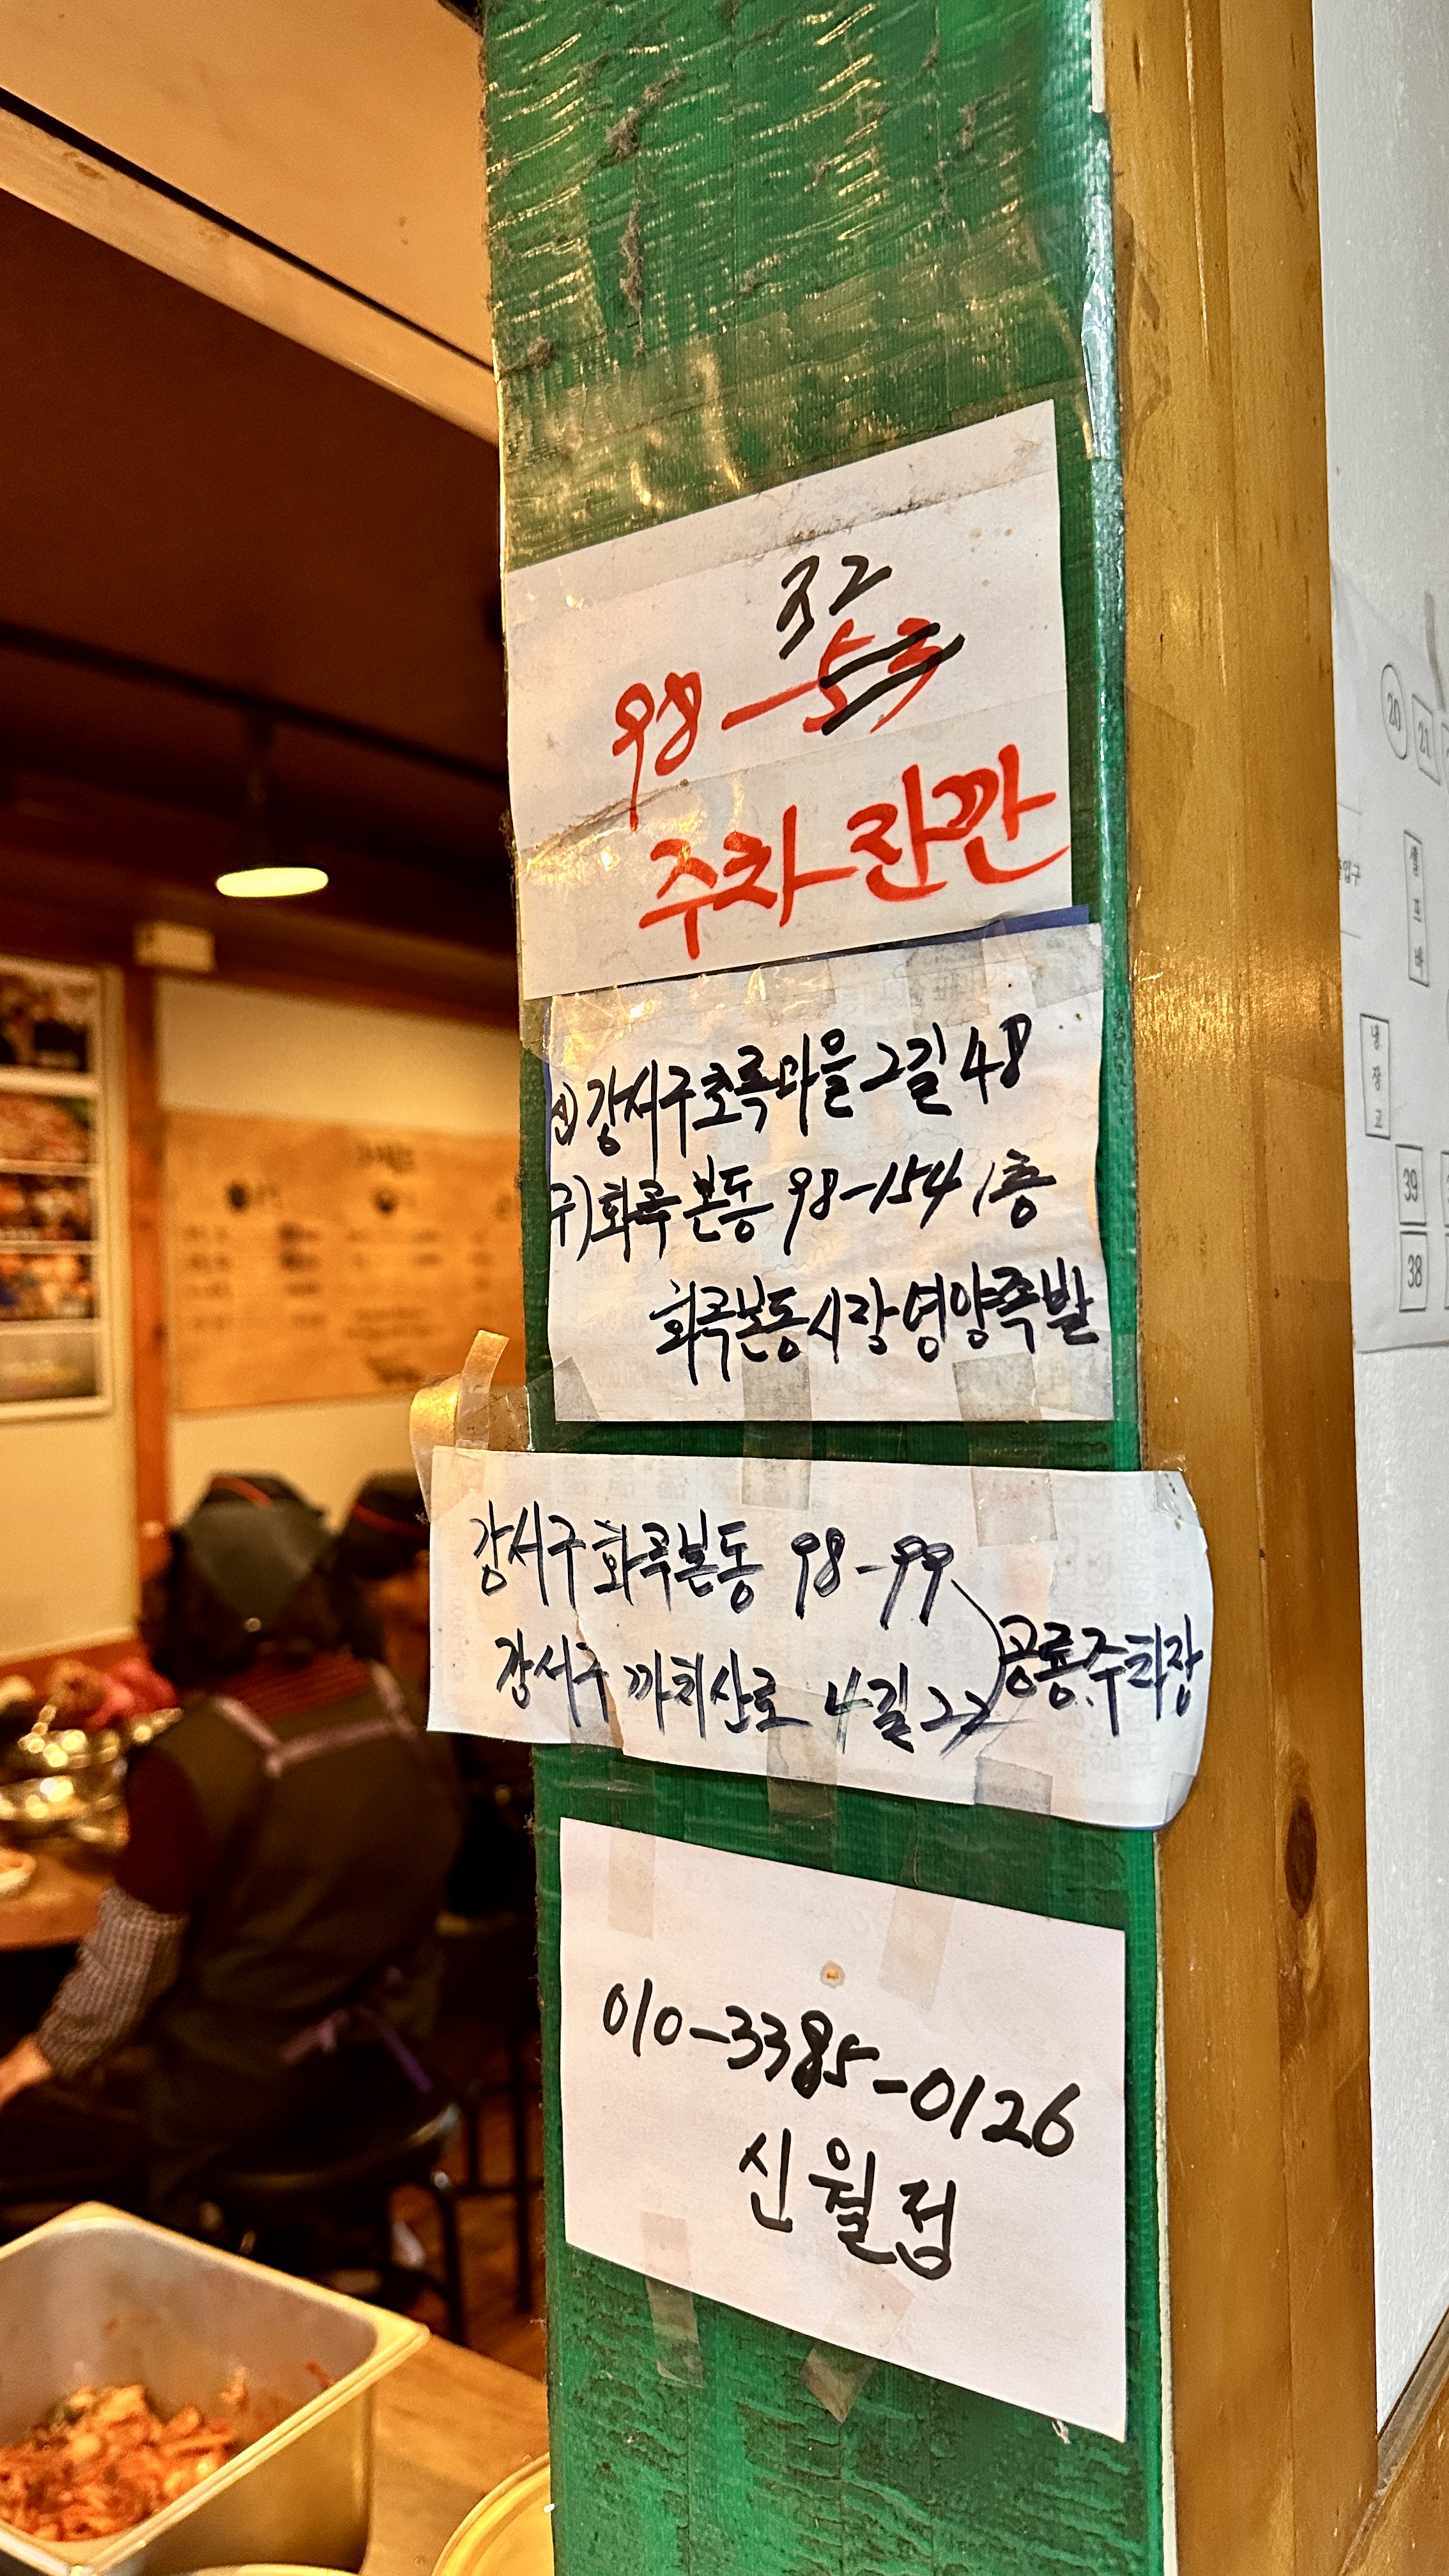 32
98-53
주차잔깐
신)강서구초록마을2길48
구)화곡본동 98-154 1층
화곡본동시장영양족발
강서구화곡본동 98-99
강서구 까치산로 4길22
공룡주차장
010-3385-0126
신월점
20
21
출입구
냉장고
39
38